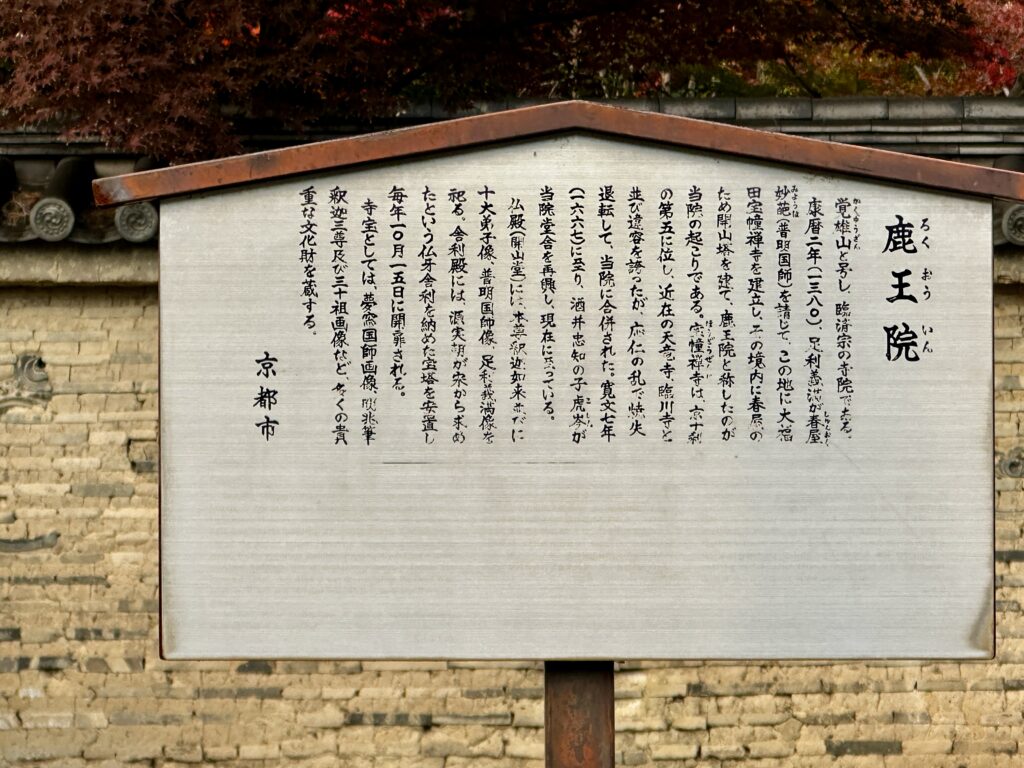 鹿王院
ろくおういん
覚雄山と号し、臨済宗の寺院である。
かくゆうざん
康暦二年(一三八〇)、足利義満が春屋
しゅんおく
妙葩(普明国師)を請じて、この地に大福
みょうは
田宝幢禅寺を建立し、その境内に春屋の
ため開山塔を建て、鹿王院と称したのが
当院の起こりである。宝幢禅寺は、京十刹
ほうどうぜんじ
の第五に位し、近在の天竜寺、臨川寺と
並び遑容を誇ったが、応仁の乱で焼失
退転して、当院に合併された。寛文七年
(一六六七)に至り、酒井忠知の子虎岑が
こしん
当院堂舎を再興し、現在に至っている。
仏殿(開山堂)には、本尊釈迦如来並びに
十大弟子像、普明国師像、足利義満像を
祀る。舎利殿には、源実朝が宋から求め
たという仏牙舎利を納めた宝塔を安置し
毎年一〇月一五日に開扉される。
寺宝としては、夢窓国師画像、兆筆
釈迦三尊及び三十祖画像など、多くの貴
重な文化財を蔵する。
京都市